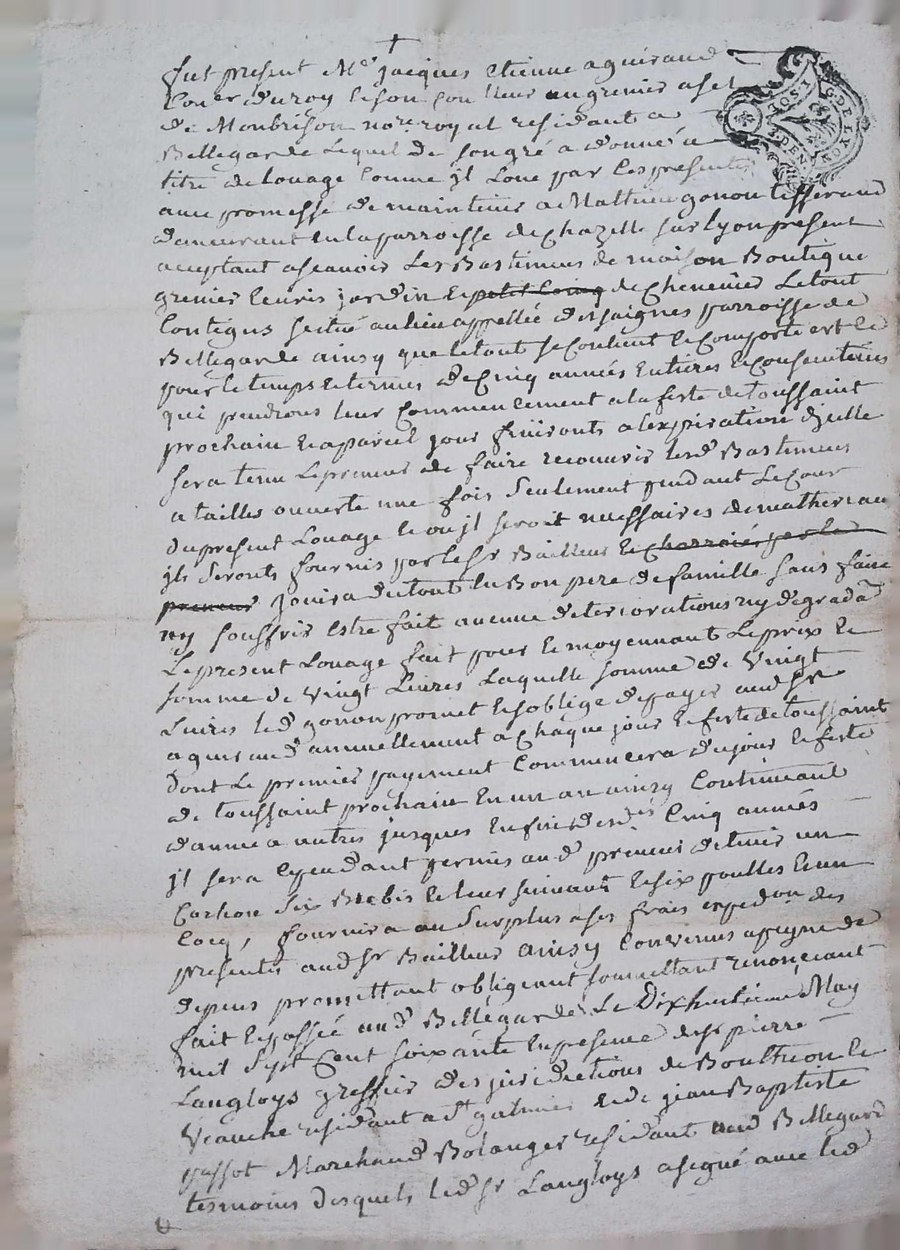 †
fut present Me jacques etienne aguiraud
Coner du roy et son Con lleur au grenier a sel
de Monbrison nore royal residant a
Bellegarde lequel de son gré a donné a
titre de louage comme jl loue par les presente
avec promesse de maintenir a Mathieu gonon tisserand
demeurant en la parroisse de chazelle sur lyon present
acceptant a scavoir Les Bastimens de maison Boutique
grenier Ecuris jardin et petit Coing de chenevier Le tout
Contigus scitué au lieu appellée des saignes parroisse de
Bellegarde ainsy que le tout se Contient et Comporte et ce
pour le temps et termes de Cinq années Entieres et Consecutives
qui prendrons leur Commencement a la feste de toussaint
prochain et a pareil jour finiront a l'expiration d'jcelle
sera tenu Le preneur de faire recouvrir lesd Bastimens
a tailles ouverte une fois seulement pendant Le Cour
du present Louage et ou jl seroit necessaires de matheriau
jls seronts fournis par le sr Bailleur et charroiés par le
preneur jouira du tout en Bon pere de famille sans faire
ny souffrir estre fait aucune deteriorations ny degradaon
Le present Louage fait pour et moyennant Le prix et
somme de vingt Livres Laquelle somme de vingt
Livres led gonon promet et s'oblige de payer aud sr
aguiraud annuellement a Chaque jour et feste de toussaint
dont Le premier payement Commencera du jour et feste
de toussaint prochain En un an ainsy Continuant
d'année a autres jusques En fin desdes Cinq années
jl sera Cependant permis aud preneur de tenir un
Cochon six Brebis et leur suivant et six poulles et un
Cocq, fournira au surplus a ses frais expedon des
presentes aud sr Bailleur ainsy Convenus a peyne de
depens promettant obligeant soumettant renonceant
fait et passée aud Bellegarde Le Dixhuitieme May
mil sept Cent soixante En presence de sr pierre
Langloys greffier des jurisdictions de Boutheon et
veauche residant a st galmier et de jean Baptiste
passot Marchand Bolanger residant aud Bellegard
tesmoins desquels led sr Langloys a signé avec led
G.DE LYON
1.SOL
4.DEN.